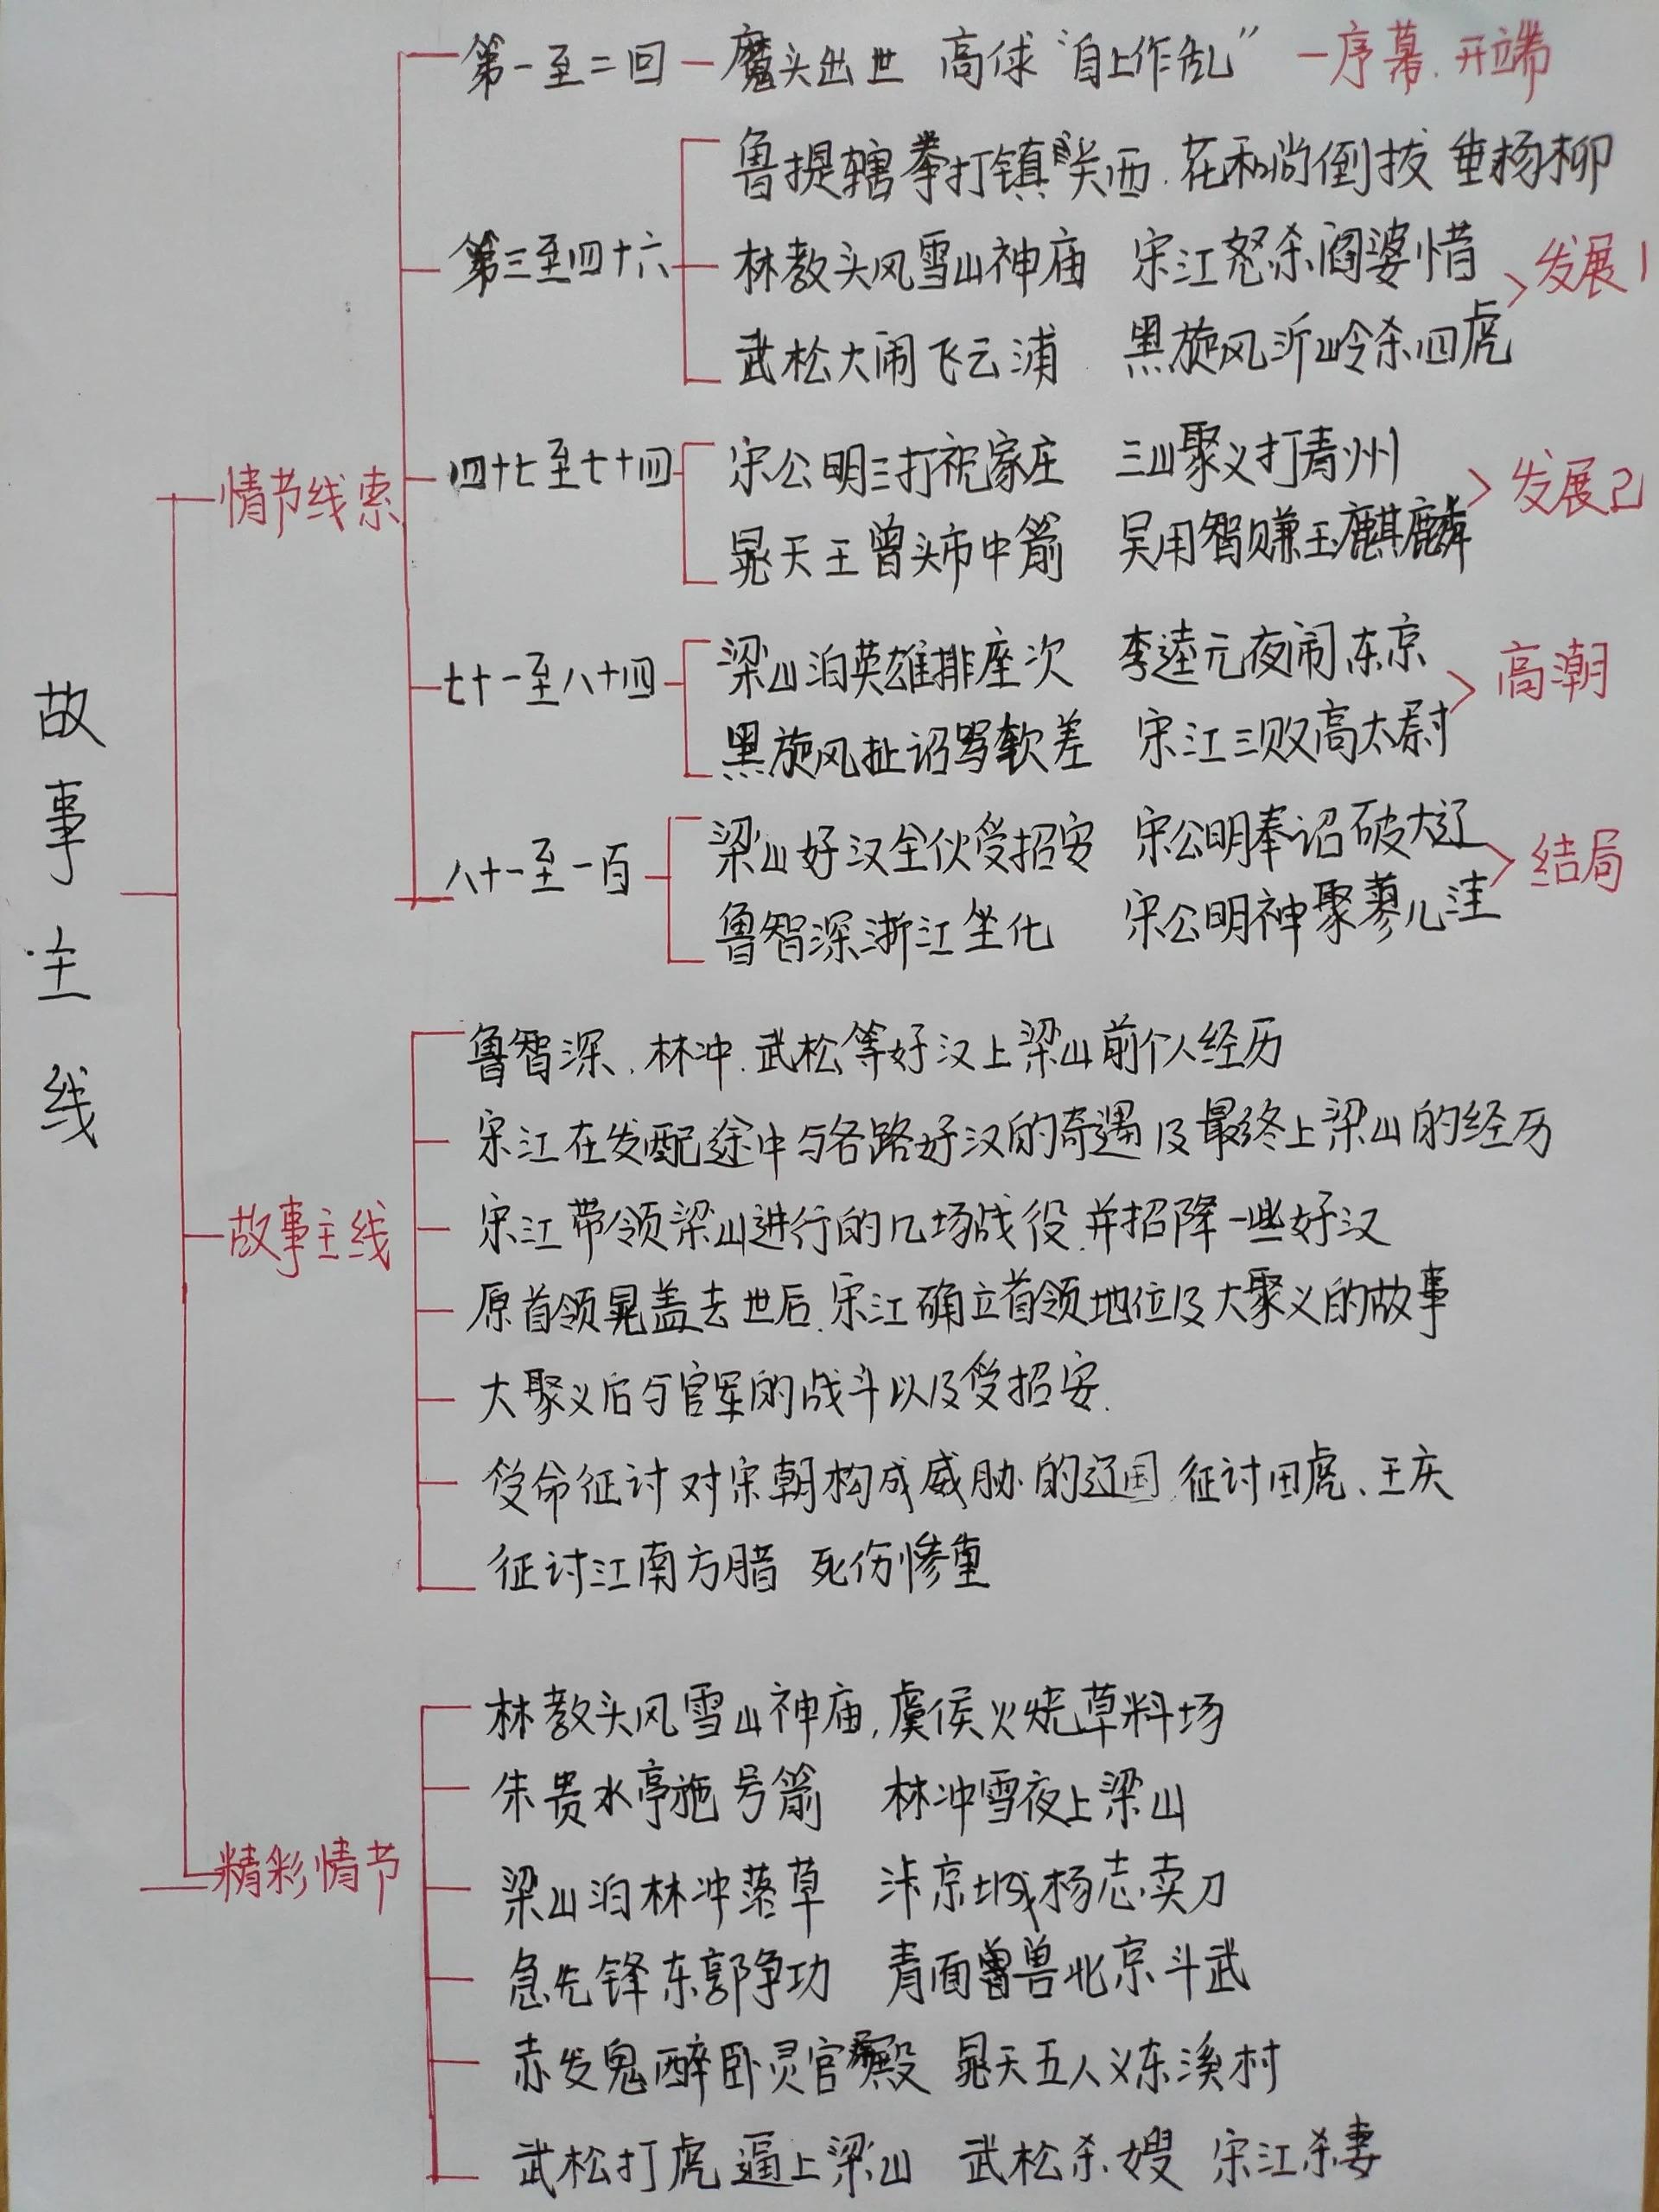 故事主线
情节线索
第一至二回 魔头出世 高俅“自上作乱” 序幕、开端
第三至四十六
鲁提辖拳打镇关西、花和尚倒拔垂杨柳
林教头风雪山神庙 宋江怒杀阎婆惜
武松大闹飞云浦 黑旋风沂岭杀四虎
发展1
四十七至七十四
宋公明三打祝家庄 三山聚义打青州
晁天王曾头市中箭 吴用智赚玉麒麟
发展2
七十一至八十四
梁山泊英雄排座次 李逵元夜闹东京
黑旋风扯诏骂钦差 宋江三败高太尉
高潮
八十一至一百
梁山好汉全伙受招安 宋公明奉诏破大辽
鲁智深浙江坐化 宋公明神聚蓼儿洼
结局
故事主线
鲁智深、林冲、武松等好汉上梁山前个人经历
宋江在发配途中与各路好汉的奇遇及最终上梁山的经历
宋江带领梁山进行的几场战役、并招降一些好汉
原首领晁盖去世后、宋江确立首领地位及大聚义的故事
大聚义后与官军的战斗以及受招安.
受命征讨对宋朝构成威胁的辽国 征讨田虎、王庆
征讨江南方腊 死伤惨重
精彩情节
林教头风雪山神庙,虞侯火烧草料场
朱贵水亭施号箭 林冲雪夜上梁山
梁山泊林冲落草 汴京城杨志卖刀
急先锋东郭争功 青面兽北京斗武
赤发鬼醉卧灵官殿 晁天五人义东溪村
武松打虎 逼上梁山 武松杀嫂 宋江杀妻